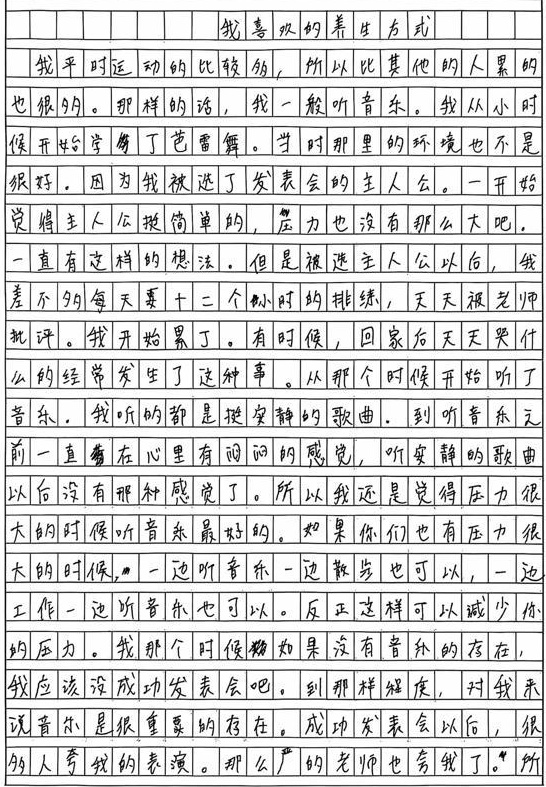 我喜欢的养生方式
我平时运动的比较多，所以比其他的人累的
也很多。那样的话，我一般听音乐。我从小时
候开始学了芭雷舞。当时那里的环境也不是
很好。因为我被选了发表会的主人公。一开始
觉得主人公挺简单的，压力也没有那么大吧。
一直有这样的想法。但是被选主人公以后，我
差不多每天要十二个小时的排练，天天被老师
批评。我开始累了。有时候，回家后天天哭什
么的经常发生了这种事。从那个时候开始听了
音乐。我听的都是挺安静的歌曲。到听音乐之
前一直在心里有闷闷的感觉，听安静的歌曲
以后没有那种感觉了。所以我还是觉得压力很
大的时候听音乐最好的。如果你们也有压力很
大的时候，一边听音乐一边散步也可以，一边
工作一边听音乐也可以。反正这样可以减少你
的压力。我那个时候如果没有音乐的存在，
我应该没成功发表会吧。到那样程度，对我来
说音乐是很重要的存在。成功发表会以后，很
多人夸我的表演。那么严的老师也夸我了。所